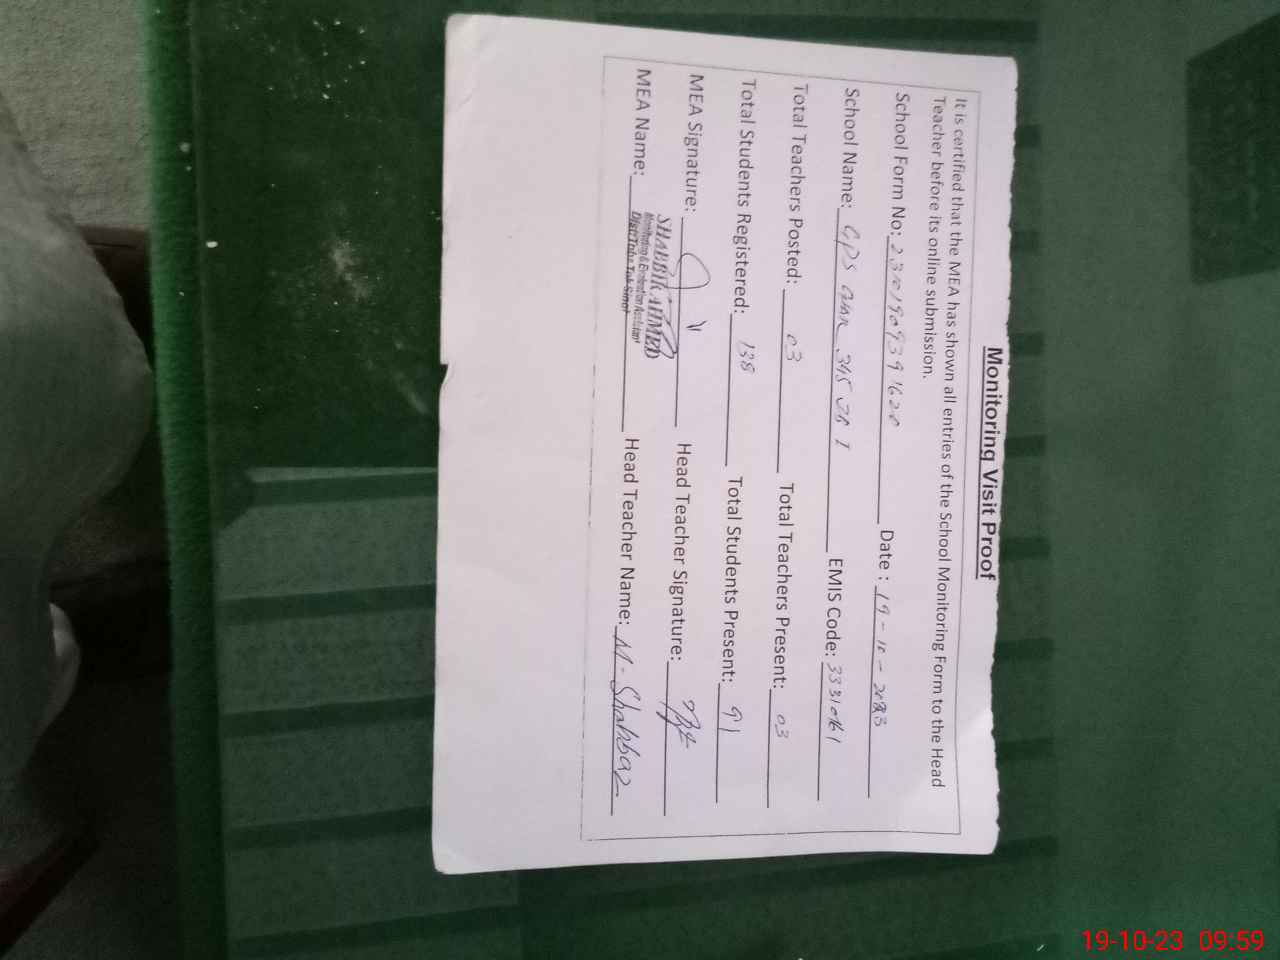 Monitoring Visit Proof
It is certified that the MEA has shown all entries of the School Monitoring Form to the Head
Teacher before its online submission.
School Form No: Date: 19-10-2023
School Name: GPS 345 JB 1 EMIS Code: 33310161
Total Teachers Posted: 03 Total Teachers Present: 03
Total Students Registered: 138 Total Students Present: 91
MEA Signature: Head Teacher Signature:
MEA Name: SHABBIR AHMED Head Teacher Name: M. Shahbaz
Monitoring & Evaluation Assistant
Distt: Toba Tek Singh
19-10-23 09:59